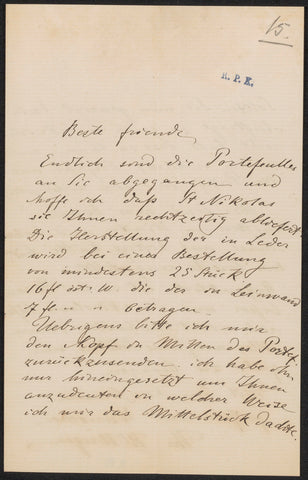 15.
R. P. K.
Beste friende,
Endlich sind die Portefeulles
an Sie abgegangen und
hoffe ich daß St Nikolas
sie Ihnen rechtzeitig abliefert.
Die Herstellung der in Leder
wird bei einer Bestellung
von mindestens 25 Stück
16 fl öst. W. die der in Leinwand
7 fl. " " betragen.
Uebrigens bitte ich mir
den Kopf in Mitten des Portef.
zurückzusenden. ich habe ihn
nur hineingesetzt um Ihnen
anzudeuten in welcher Weise
ich mir das Mittelstück dachte.